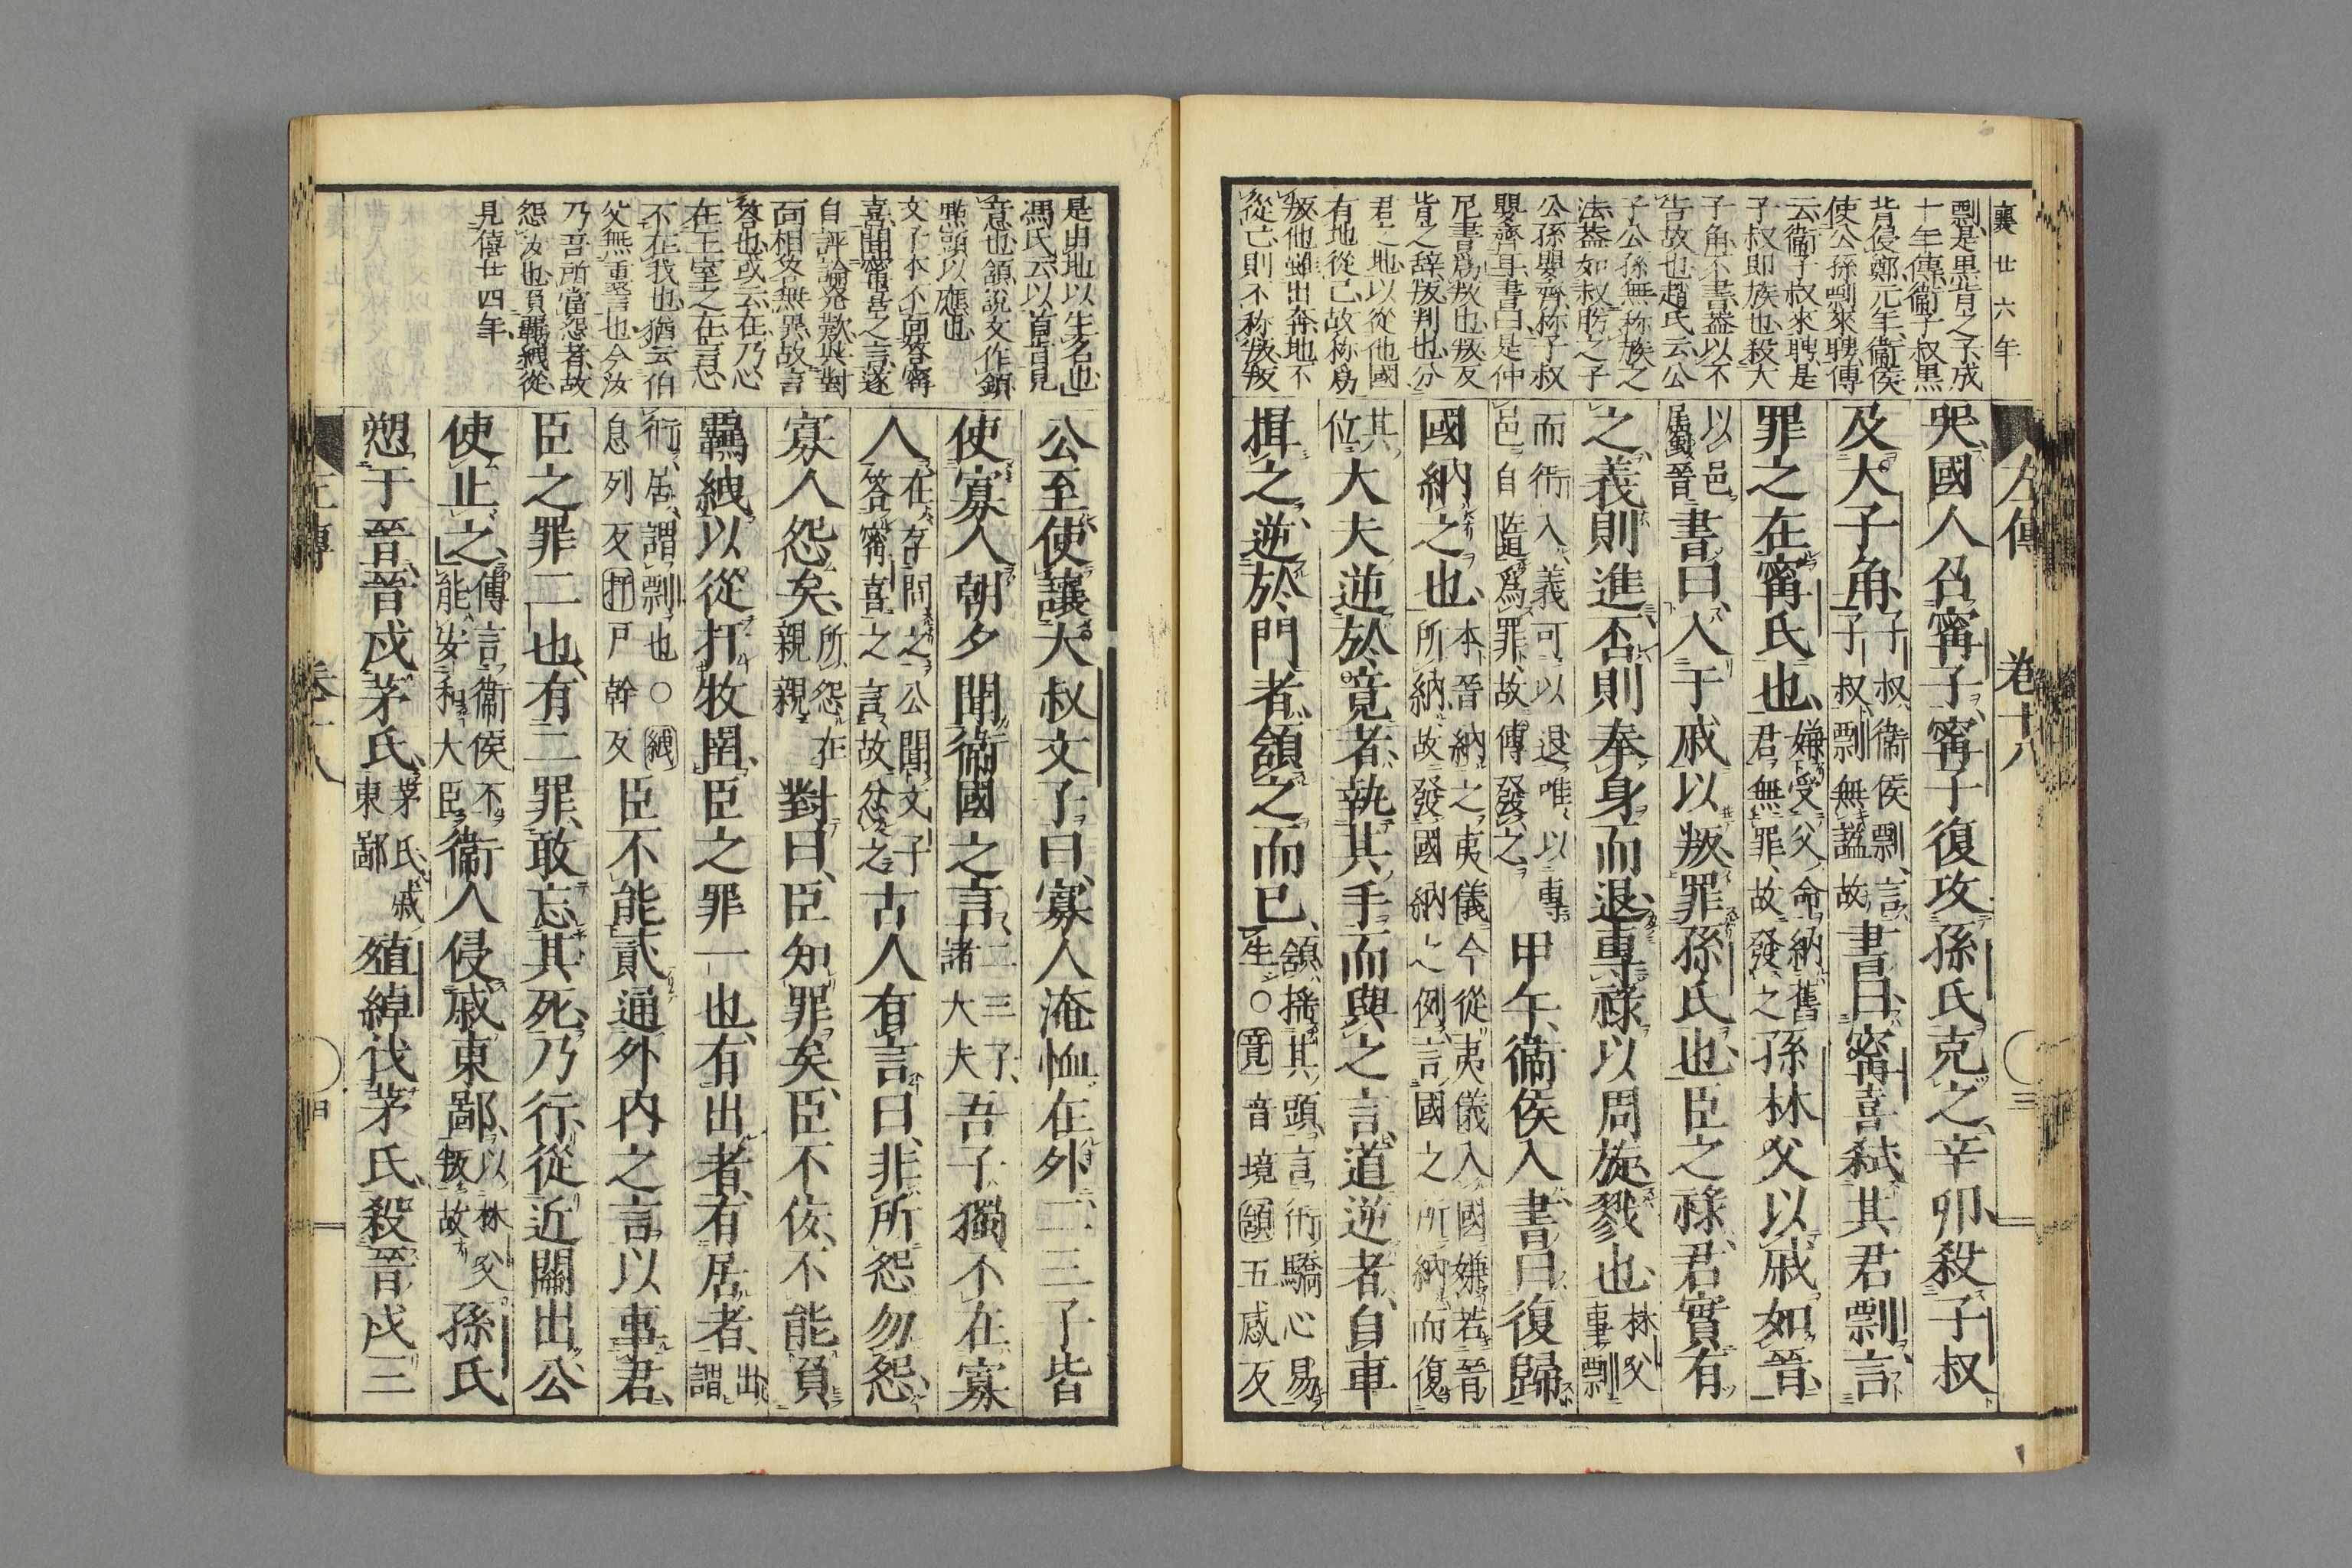 襄廿六年
剽是黒背之子成
十年傳衞子叔黒
背侵鄭元年衞侯
使公孫剽來聘傳
云衞子叔來聘是
子叔即族也殺大
子角不書蓋以不
告故也趙氏云公
子公孫無称族之
法蓋如叔肸之子
公孫嬰齊称子叔
嬰齊耳書曰是仲
尼書爲叛也叛反
背之辞叛判也分
君之地以從他國
有地從己故称爲
叛他雖出奔地不
從己則不称叛
左傳 卷十八 三
哭國人召寗子寗子復攻孫氏克之辛卯殺子叔
及大子角子叔衞侯剽言子叔剽無諡故書曰寗喜弑其君剽言
罪之在寗氏也嫌受父命納舊君無罪故發之孫林父以戚如晉
以邑屬晉書曰入于戚以叛罪孫氏也臣之祿君實有
之義則進否則奉身而退專祿以周旋戮也林父事剽
而衎入義可以退唯以專邑自隨爲罪故傳發之甲午衞侯入書曰復歸
國納之也本晉納之夷儀今從夷儀入國嫌若晉所納故發國納之例言國之所納而復
其位大夫逆於竟者執其手而與之言道逆者自車
揖之逆於門者頷之而已頷搖其頭言衎驕心易生○竟音境頷五感反
是由地以生名也
馮氏云以首肯見
意也頷説文作顉
點頭以應也
文子本不向答寗
喜聞寗喜之言遂
自評論發歎與對
面相答無異故言
答也或云在乃心
在王室之在言忌
不在我也猶云伯
父無裏言也今汝
乃吾所當怨者故
怨汝也負羈絏從
見僖廿四年
公至使讓大叔文子曰寡人淹恤在外二三子皆
使寡人朝夕聞衞國之言二三子諸大夫吾子獨不在寡
人在存問之公聞文子答寗喜之言故忿之古人有言曰非所怨勿怨
寡人怨矣所怨在親親對曰臣知罪矣臣不佞不能負
羈絏以從扞牧圉臣之罪一也有出者有居者出謂
衎居謂剽也○絏息列反扞戸幹反臣不能貳通外内之言以事君
臣之罪二也有二罪敢忘其死乃行從近關出公
使止之傳言衞侯不能安和大臣衞人侵戚東鄙以林父叛故孫氏
愬于晉晉戍茅氏茅氏戚東鄙殖綽伐茅氏殺晉戍三